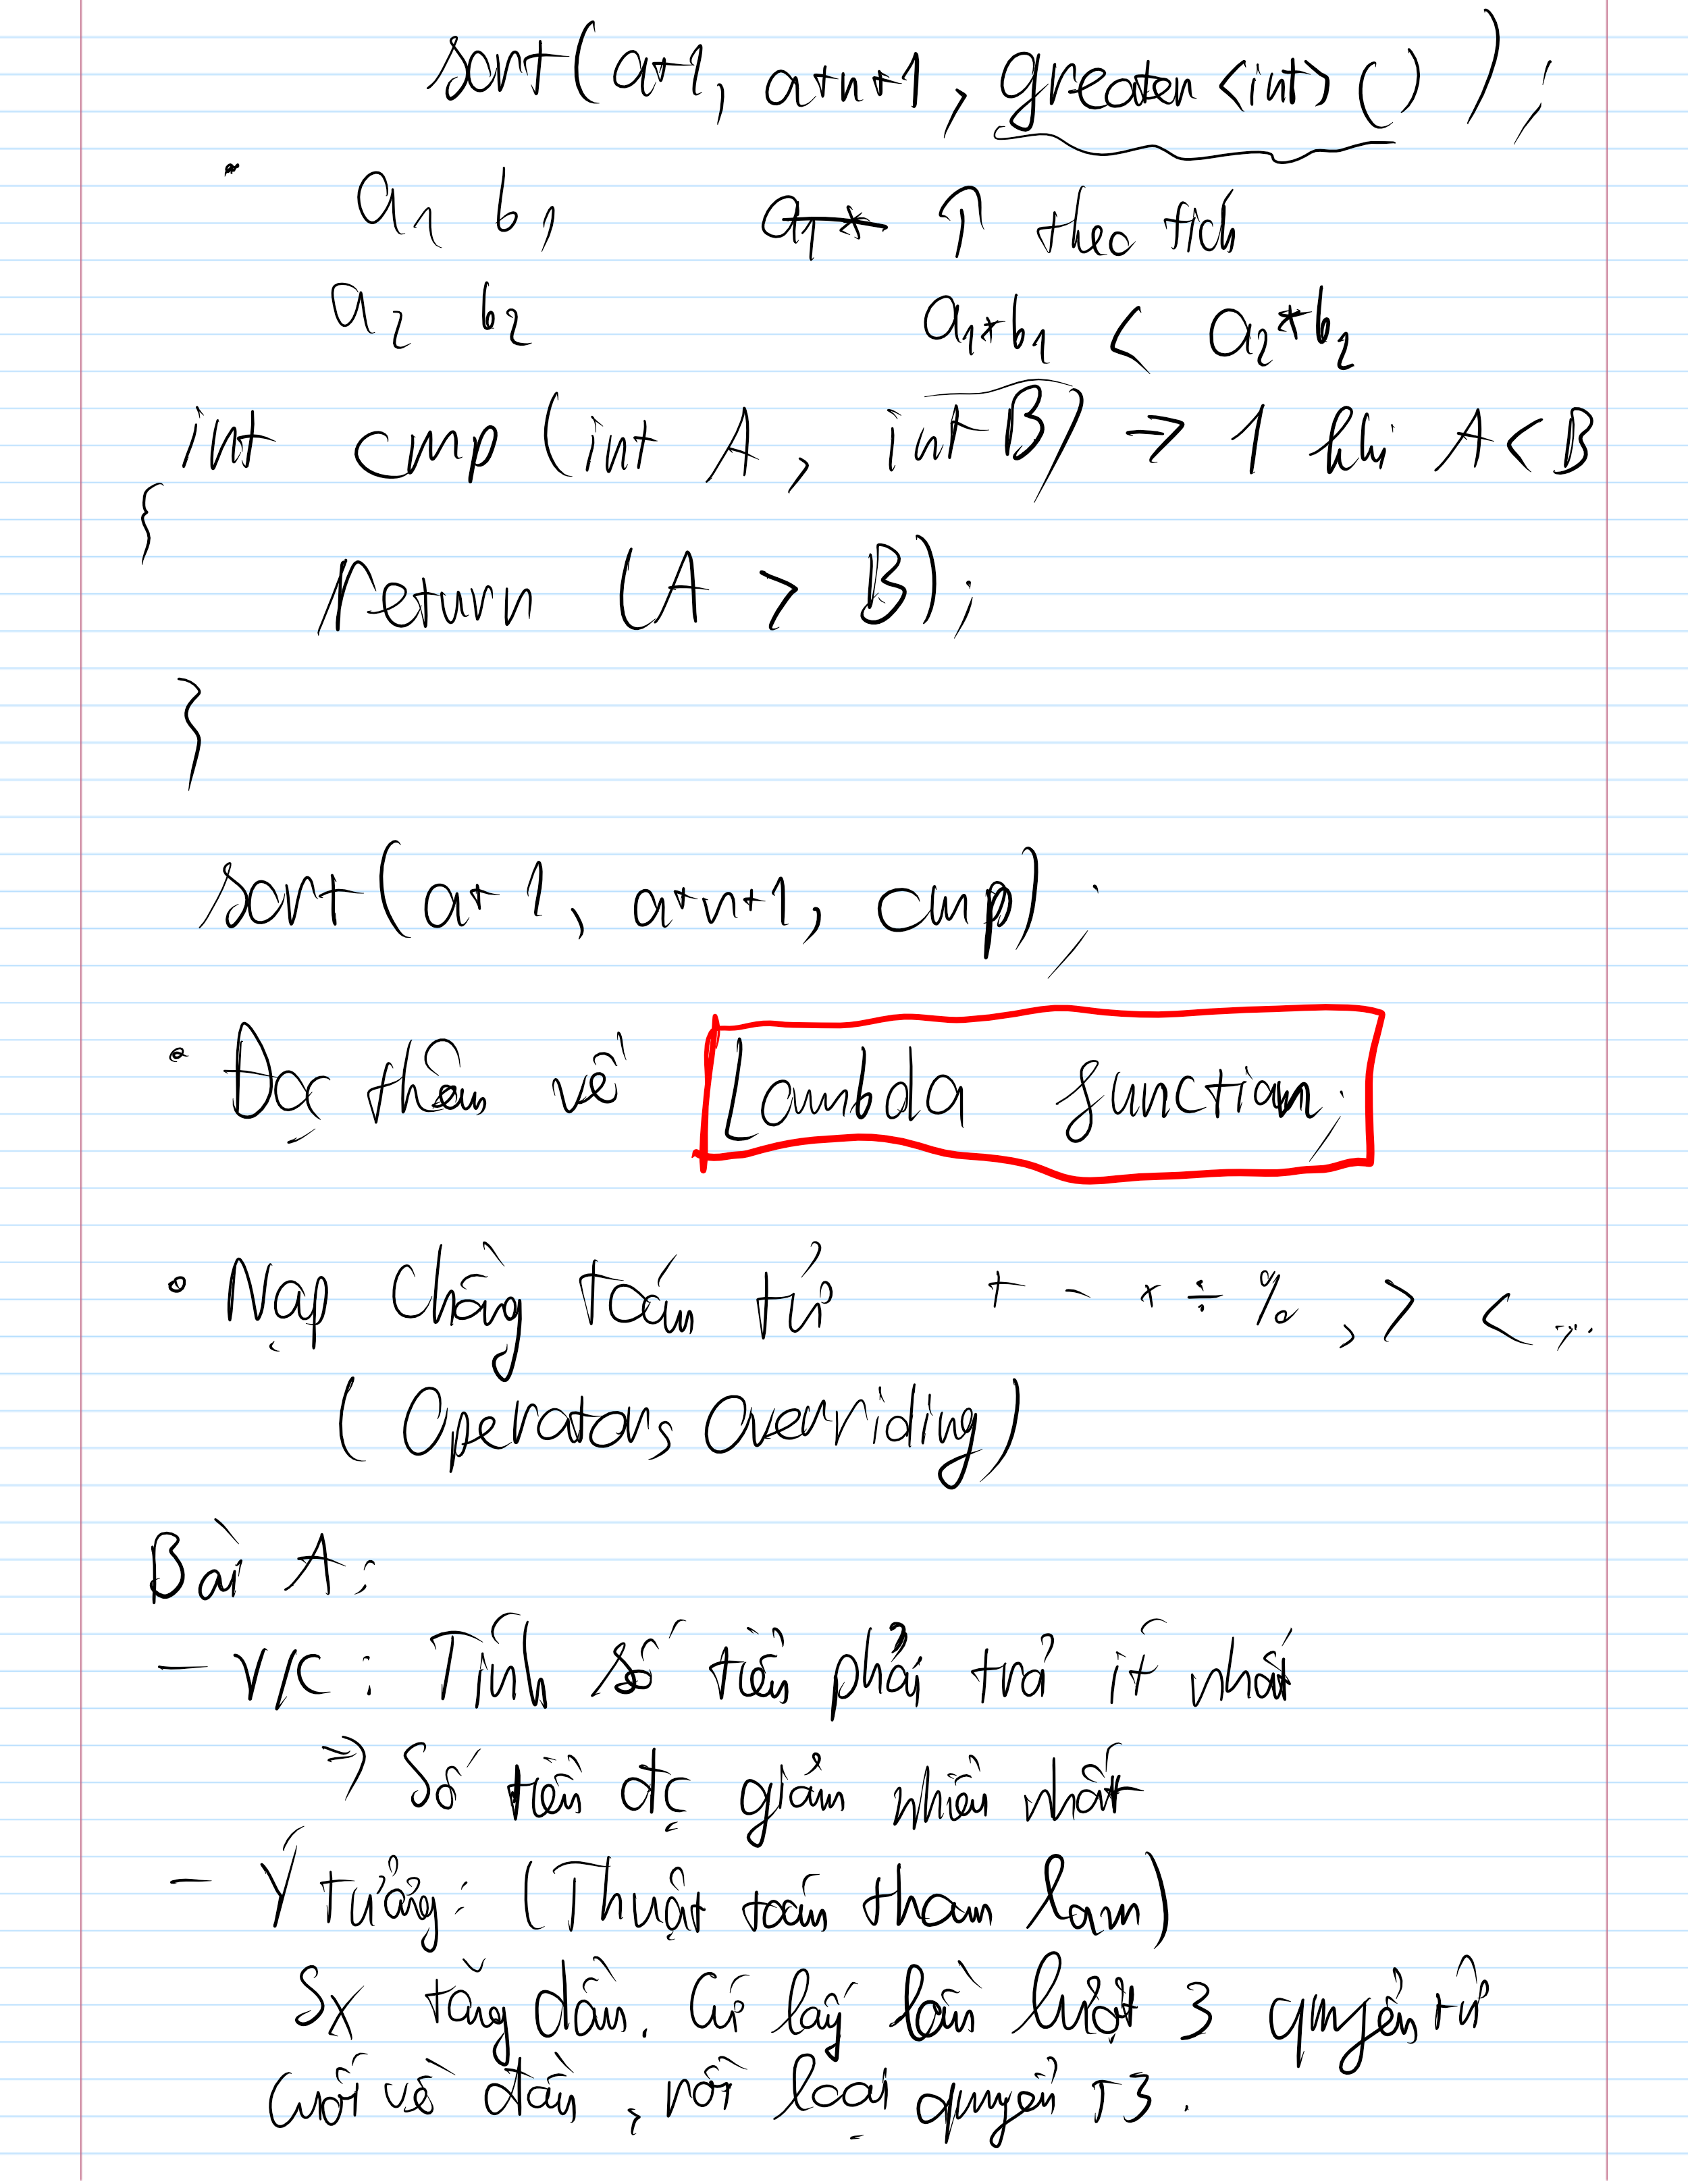 sort(a+1, a+n+1, greater<int>());
a1 b1, ↑ theo tích
a2 b2 a1*b1 < a2*b2
int cmp (int A, int B) → 1 khi A < B
{
return (A > B);
}
sort(a+1, a+n+1, cmp);
• Đọc thêm về Lambda function;
• Nạp chồng toán tử + - * ÷ %, > < ,...
(Operators Overriding)
Bài A:
- Y/C: Tính số tiền phải trả ít nhất
⇒ Số tiền đc giảm nhiều nhất
- Ý tưởng: (Thuật toán tham lam)
Sx tăng dần. Cứ lấy lần lượt 3 quyển từ
cuối về đầu, rồi loại quyển T3.